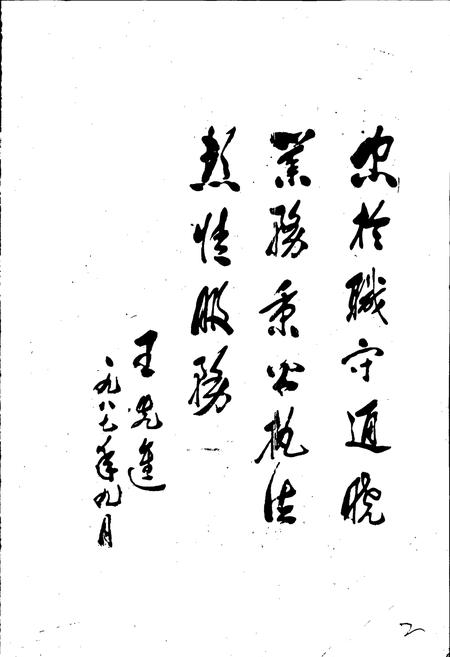 忠於職守通曉
業務秉公執法
熱情服務
王先進
一九八七年九月
2